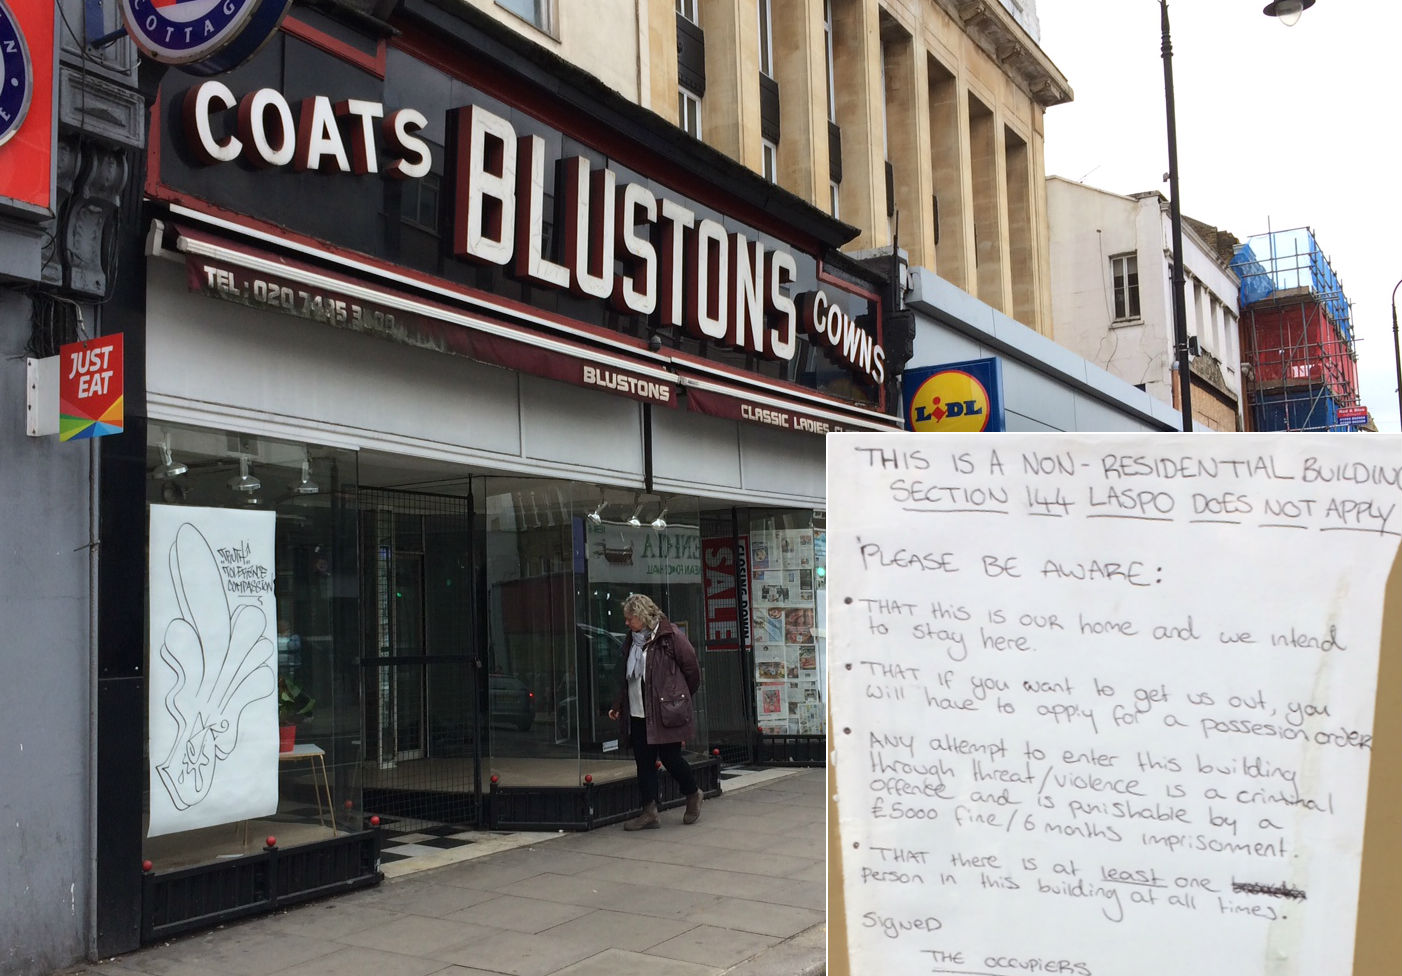 COTTAG
JUST
EAT
COATS BLUSTONS GOWNS
TEL: 020 7485 3
BLUSTONS
CLASSIC LADIES
LIDL
"TRUTH"
TOLERENCE
COMPASSION
SALE
CLOSING DOWN
THIS IS A NON-RESIDENTIAL BUILDING
SECTION 144 LASPO DOES NOT APPLY
PLEASE BE AWARE:
• THAT this is our home and we intend
to stay here.
• THAT if you want to get us out, you
will have to apply for a possesion order
• ANY attempt to enter this building
through threat/violence is a criminal
offence and is punishable by a
£5000 fine/6 months imprisonment.
• THAT there is at least one
person in this building at all times.
Signed
THE OCCUPIERS